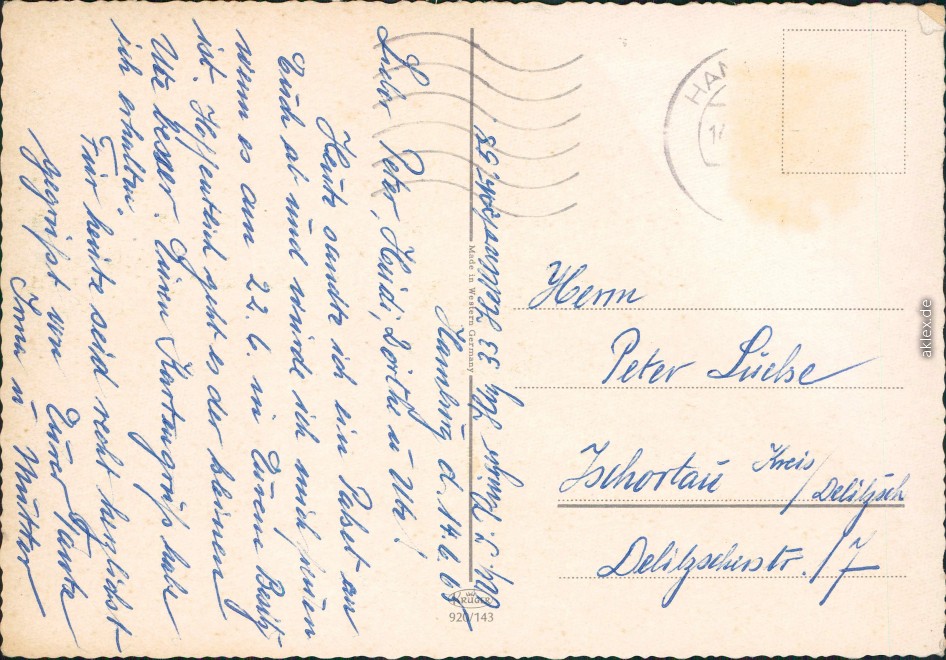 Hamburg d. 14.6.
Lieber Peter, Heidi, Dörthe u Ute!
Heute sandte ich ein Paket an
Euch ab und würde ich mich freuen
wenn es am 22.6. in Eurem Besitz
ist. Hoffentlich geht es der kleinen
Ute besser. Einen Kartengruß habe
ich erhalten.
Für heute seid recht herzlichst
gegrüßt von Eurer Tante
Irma u Mutter
Hbg 33
Made in Western Germany
KRÜGER
920/143
HAM
14
Herrn
Peter Lüchse
Zschortau Kreis / Delitzsch
Delitzscherstr. 17
aklex.de